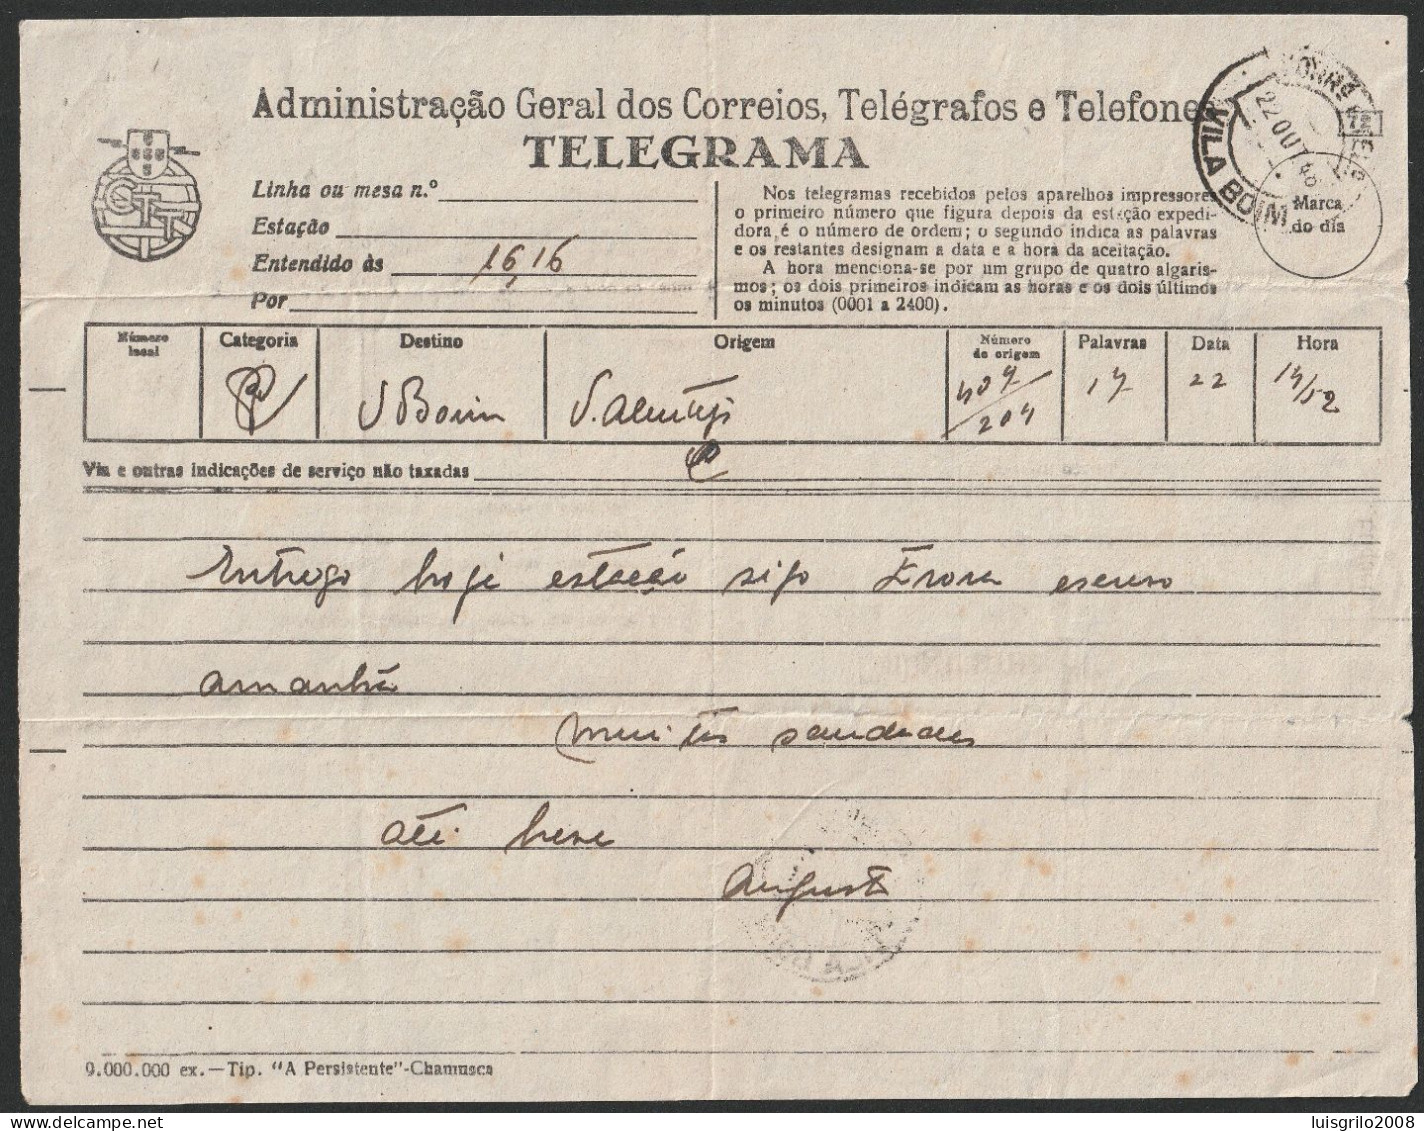 Administração Geral dos Correios, Telégrafos e Telefones
TELEGRAMA
CTT
Linha ou mesa n.º
Estação
Entendido às 16,16
Por
Nos telegramas recebidos pelos aparelhos impressores
o primeiro número que figura depois da estação expedi-
dora é o número de ordem; o segundo indica as palavras
e os restantes designam a data e a hora da aceitação.
A hora menciona-se por um grupo de quatro algaris-
mos; os dois primeiros indicam as horas e os dois últimos
os minutos (0001 a 2400).
VILA BOIM
22 OUT 48
72
Marca
do dia
Número
local
Categoria
Destino
Origem
Número
de origem
Palavras
Data
Hora
V Boim
V. Alentejo
17
22
14/52
Via e outras indicações de serviço não taxadas
Entrego hoje estação sigo Évora escrevo
amanhã
muitas saudades
até breve
Augusto
9.000.000 ex.—Tip. "A Persistente"-Chamusca
luisgrilo2008